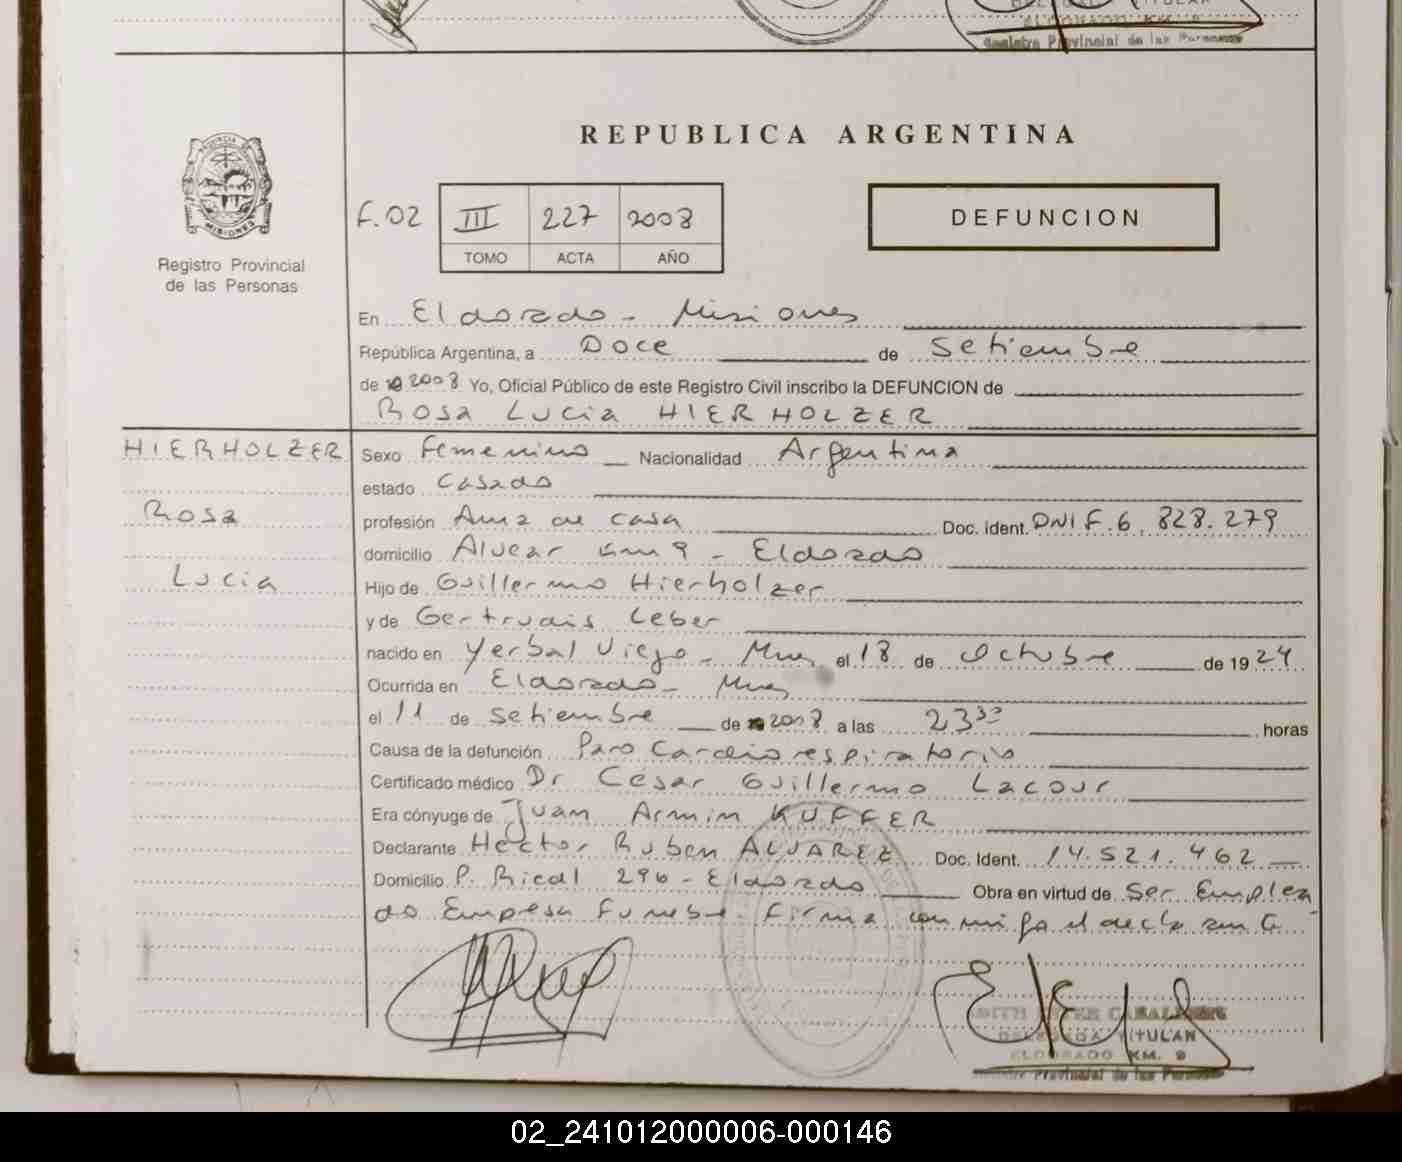 ELDORADO KM. 9
Registro Provincial de las Personas
REPUBLICA ARGENTINA
MISIONES
Registro Provincial
de las Personas
F.02 III 227 2008
TOMO ACTA AÑO
DEFUNCION
En Eldorado - Misiones
República Argentina, a Doce de Setiembre
de 19 2008 Yo, Oficial Público de este Registro Civil inscribo la DEFUNCION de
Rosa Lucia HIERHOLZER
HIERHOLZER
Rosa
Lucia
Sexo Femenino Nacionalidad Argentina
estado Casada
profesión Ama de casa Doc. ident. DNI F. 6.828.279
domicilio Alvear km 9 - Eldorado
Hijo de Guillermo Hierholzer
y de Gertrudis Leber
nacido en Yerbal Viejo - Mnes el 18 de Octubre de 1924
Ocurrida en Eldorado - Mnes
el 11 de Setiembre de 2008 a las 23³⁰ horas
Causa de la defunción Paro Cardiorespiratorio
Certificado médico Dr Cesar Guillermo Lacour
Era cónyuge de Juan Armin KUFFER
Declarante Hector Ruben ALVAREZ Doc. Ident. 14.521.462
Domicilio P. Rical 296 - Eldorado Obra en virtud de Ser Emplea
do Empresa Funebre. Firma conmigo el declarante
DELEGADA TITULAR
ELDORADO KM. 9
Registro Provincial de las Personas
02_241012000006-000146